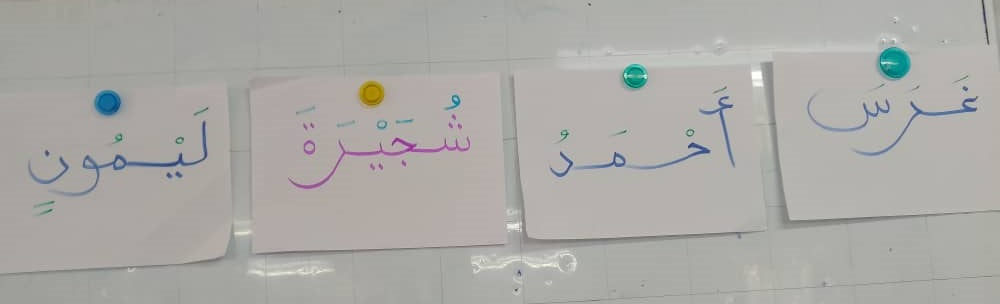 غَرَسَ أَحْمَدُ شُجَيْرَةَ لَيْمُونٍ